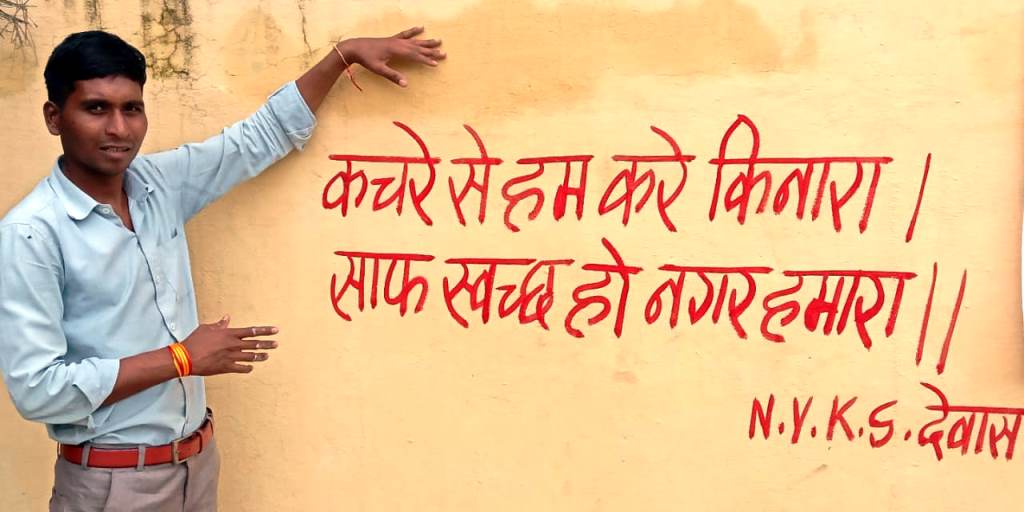 कचरे से हम करे किनारा |
साफ स्वच्छ हो नगर हमारा ||
N.Y.K.S. देवास